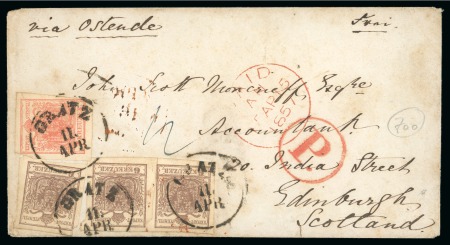 via Ostende
Frei.
John Scott Moncrieff Esqre
Accountant
20. India Street
Edinburgh
Scotland.
PAID
GRATZ
11.
APR
GRATZ
11.
APR
GRATZ
11
APR
P